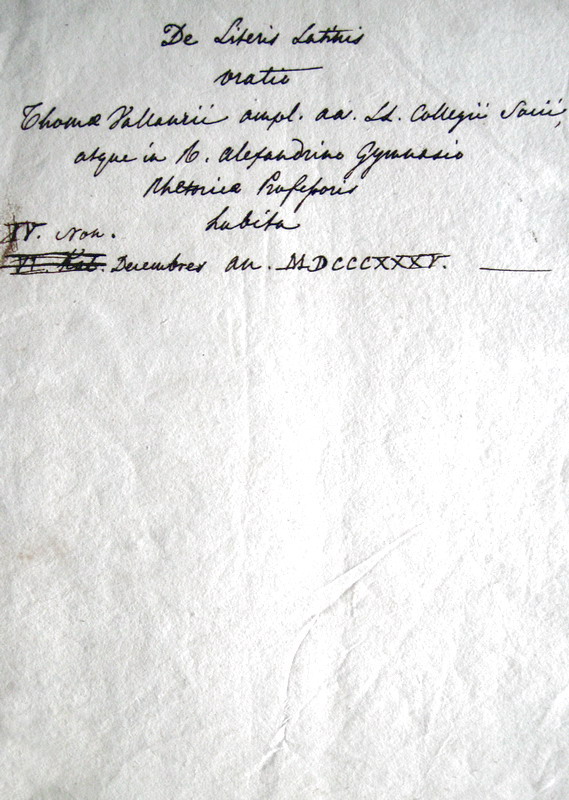 De Literis Latinis
oratio
Thomæ Vallaurii ampl. aa. Ll. Collegii Socii,
atque in R. Alexandrino Gymnasio
Rhetoricæ Professoris
habita
IV. Non.
VI. Kal. Decembres an. MDCCCXXXV.